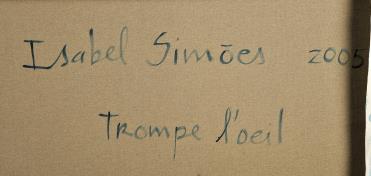 Isabel Simões 2005
Trompe l'oeil